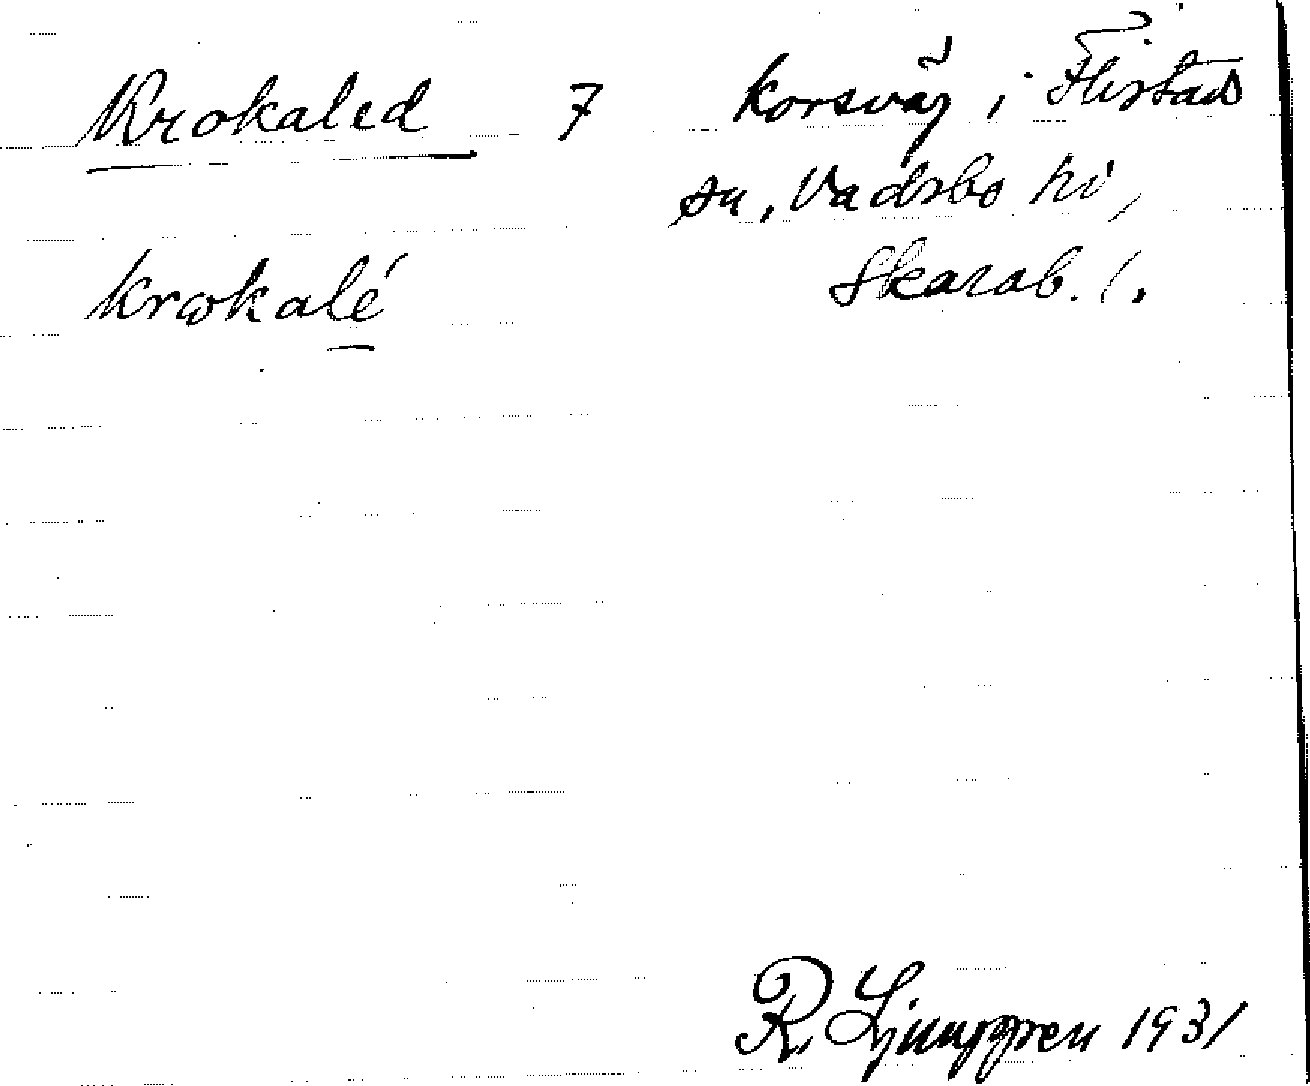 Krokaled 7 korsväg i Flistad
sn, Vadsbo hd,
Skarab. l.
krokalé
R. Ljunggren 1931